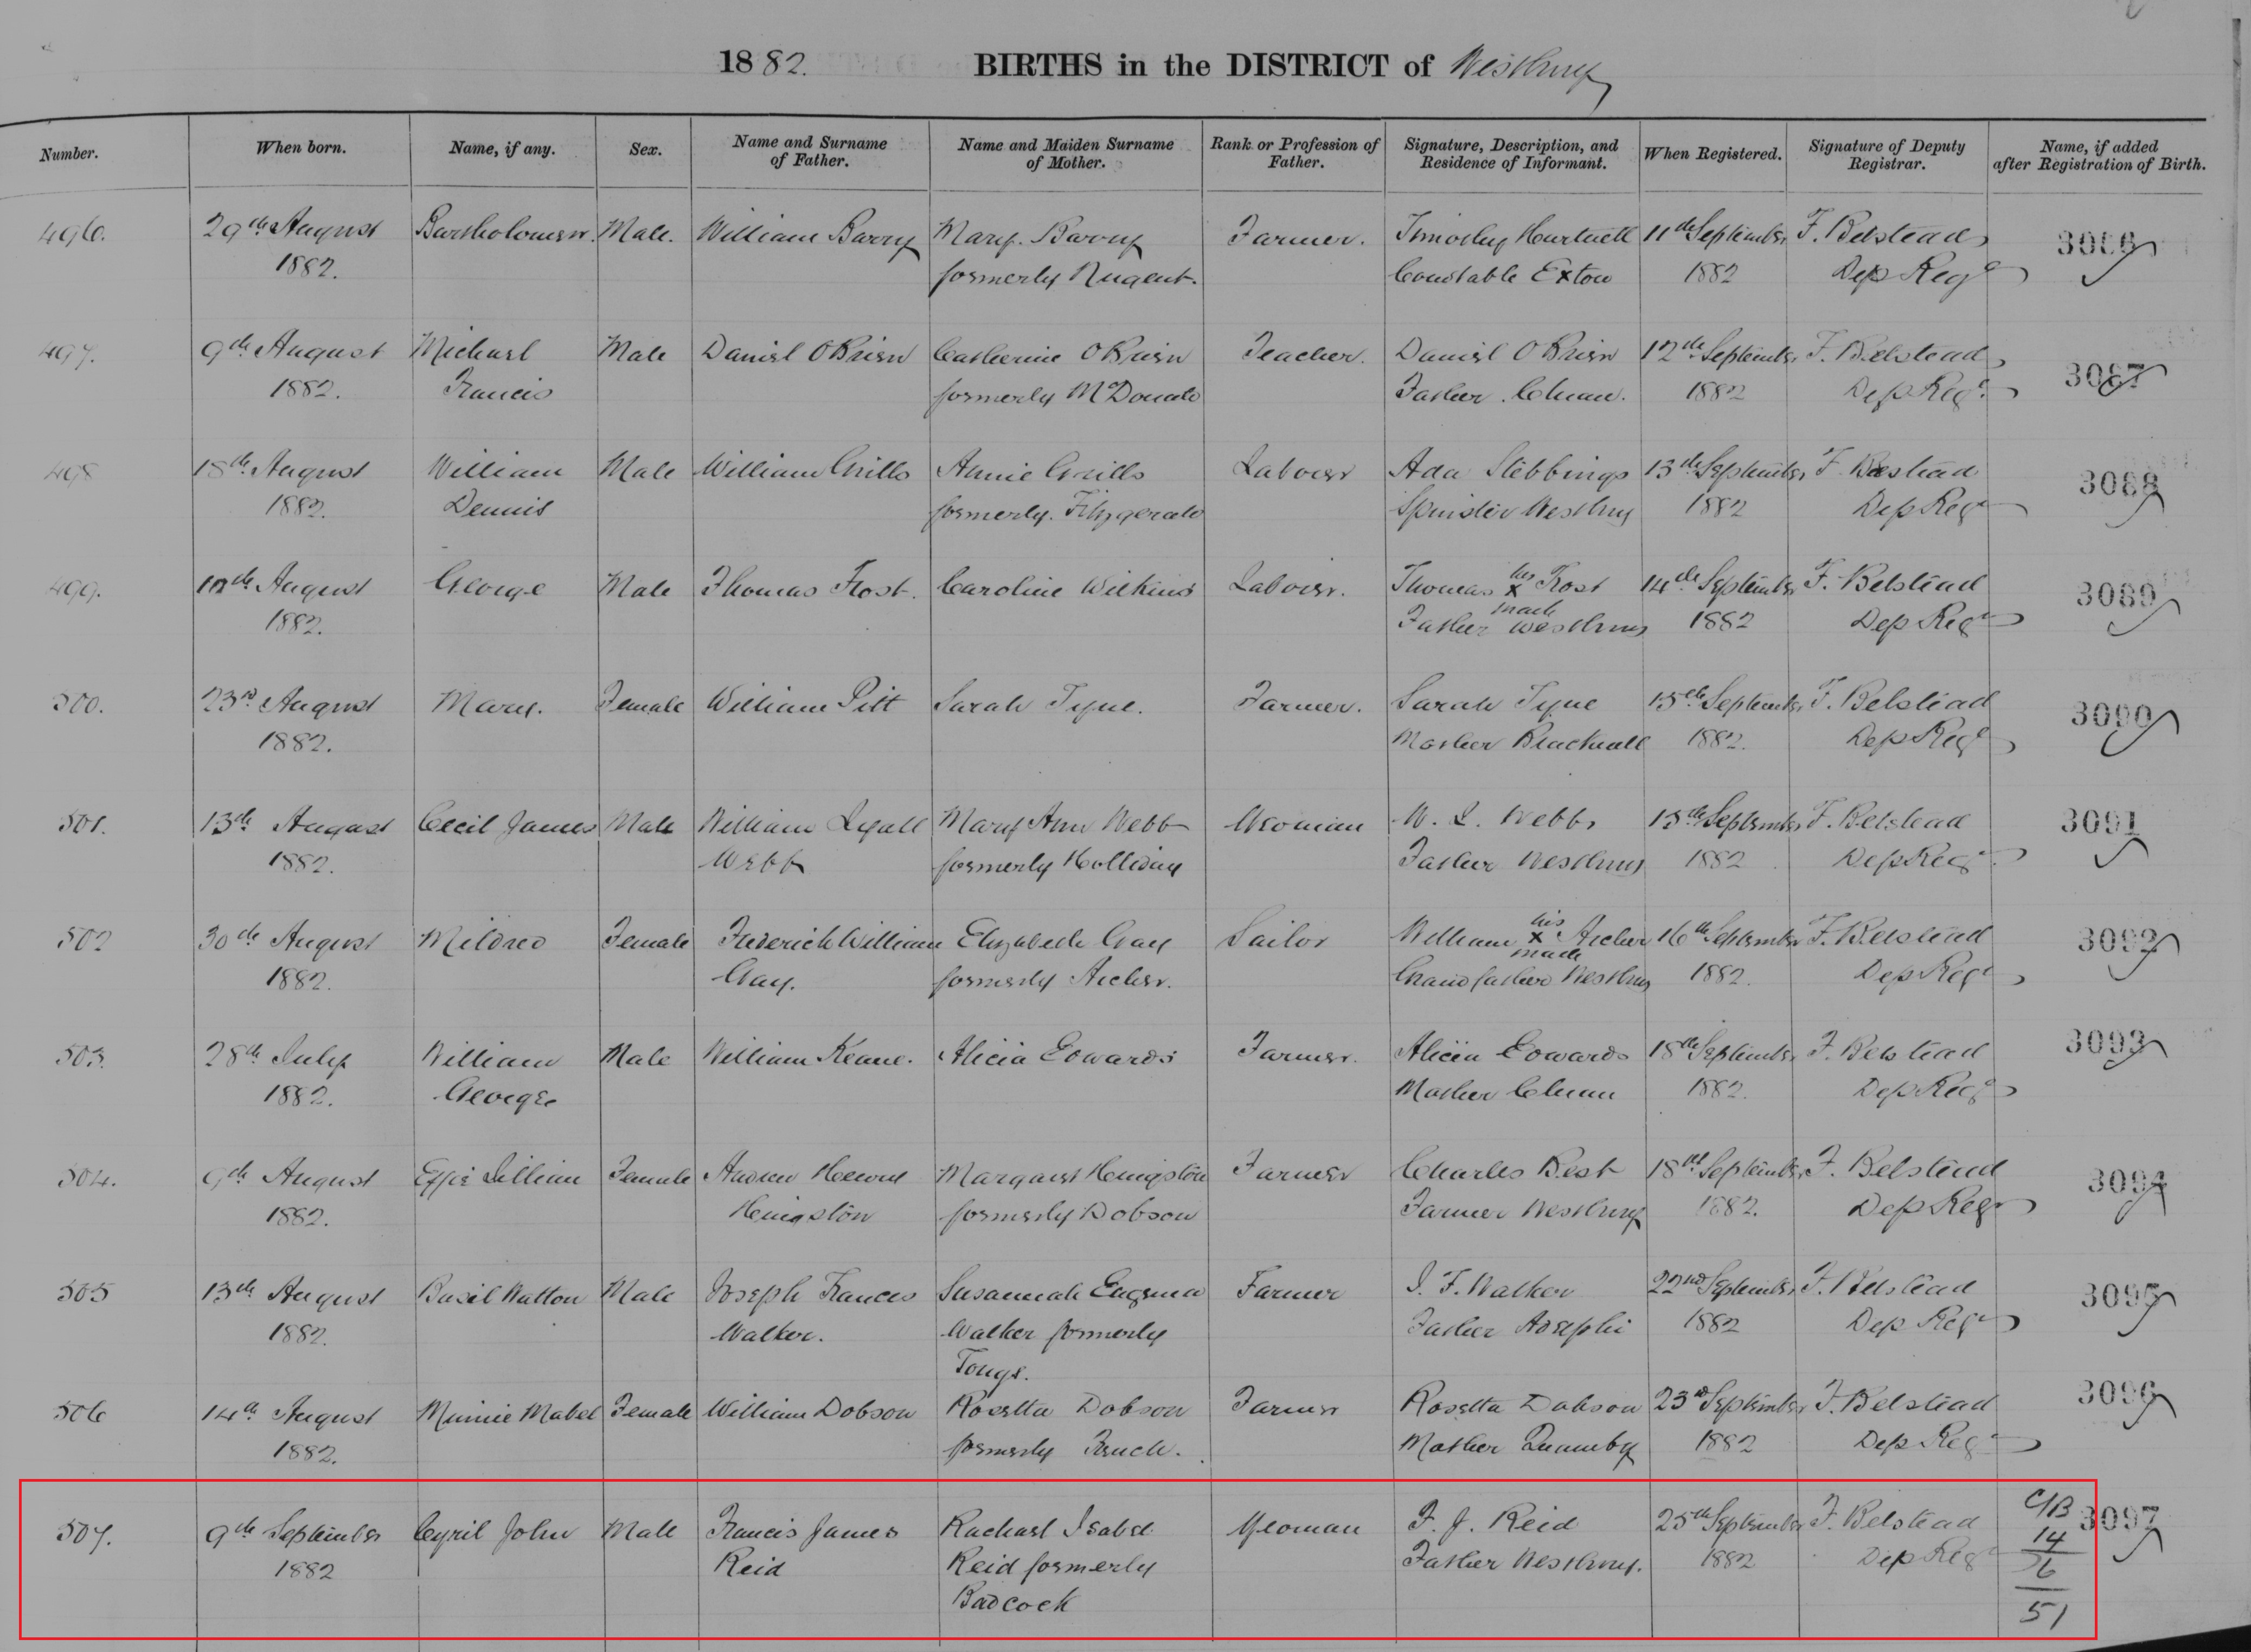 1882. BIRTHS in the DISTRICT of Westbury
Number. When born. Name, if any. Sex. Name and Surname of Father. Name and Maiden Surname of Mother. Rank or Profession of Father. Signature, Description, and Residence of Informant. When Registered. Signature of Deputy Registrar. Name, if added after Registration of Birth.
496. 29th August Bartholomew. Male. William Barry Mary Barry Farmer. Timothy Hurtnell 11th September F. Belstead 3086
1882. formerly Nugent. Constable Exton 1882 Dep Regr
497. 9th August Michael Male Daniel OBrien Catherine OBrien Teacher. Daniel OBrien 12th September F. Belstead 3087
1882. Francis formerly McDonald Father. Cluan. 1882 Dep Regr
498 18th August William Male William Grills Annie Grills Labourer Ada Stebbings 13th September F Belstead 3088
1882. Dennis formerly. Fitzgerald Spinster Westbury 1882 Dep Regr
499. August George Male Thomas Frost. Caroline Wilkins Labourer. Thomas his x mark Frost 14th September F. Belstead 3089
1882. Father Westbury 1882 Dep Regr
500. 23rd August Mary. Female William Pitt Sarah Tyne. Farmer. Sarah Tyne 15th September F. Belstead 3090
1882. Mother Blackwall 1882. Dep Regr
501. 13th August Cecil James Male William Lyall Mary Ann Webb Yeoman W. L. Webb 15th September F. Belstead 3091
1882. Webb formerly Holliday Father Westbury 1882 Dep Regr
502 30th August Mildred Female Frederick William Elizabeth Gay Sailor William his x mark Archer 16th September F. Belstead 3092
1882. Gay. formerly Archer. Grandfather Westbury 1882. Dep Regr
503. 28th July William Male William Keane. Alicia Edwards Farmer. Alicia Edwards 18th September F. Belstead 3093
1882. George Mother Cluan 1882. Dep Regr
504. 9th August Effie Lillian Female Andrew Henry Margaret Hingston Farmer Charles Best 18th September F. Belstead 3094
1882. Hingston formerly Dobson Farmer Westbury 1882. Dep Regr
505 13th August Basil Watton Male Joseph Frances Susannah Eugenia Farmer J. F. Walker 22nd September F. Belstead 3095
1882. Walker. Walker formerly Father Adelphi 1882 Dep Regr
Tongs.
506 14th August Minnie Mabel Female William Dobson Rosetta Dobson Farmer Rosetta Dobson 23rd September F. Belstead 3096
1882. formerly French. Mother Quamby 1882 Dep Regr
507. 9th September Cyril John Male Francis James Rachael Isabel Yeoman F. J. Reid 25th September F. Belstead C/B 3097
1882 Reid Reid formerly Father Westbury. 1882 Dep Regr 14
Badcock 6
51